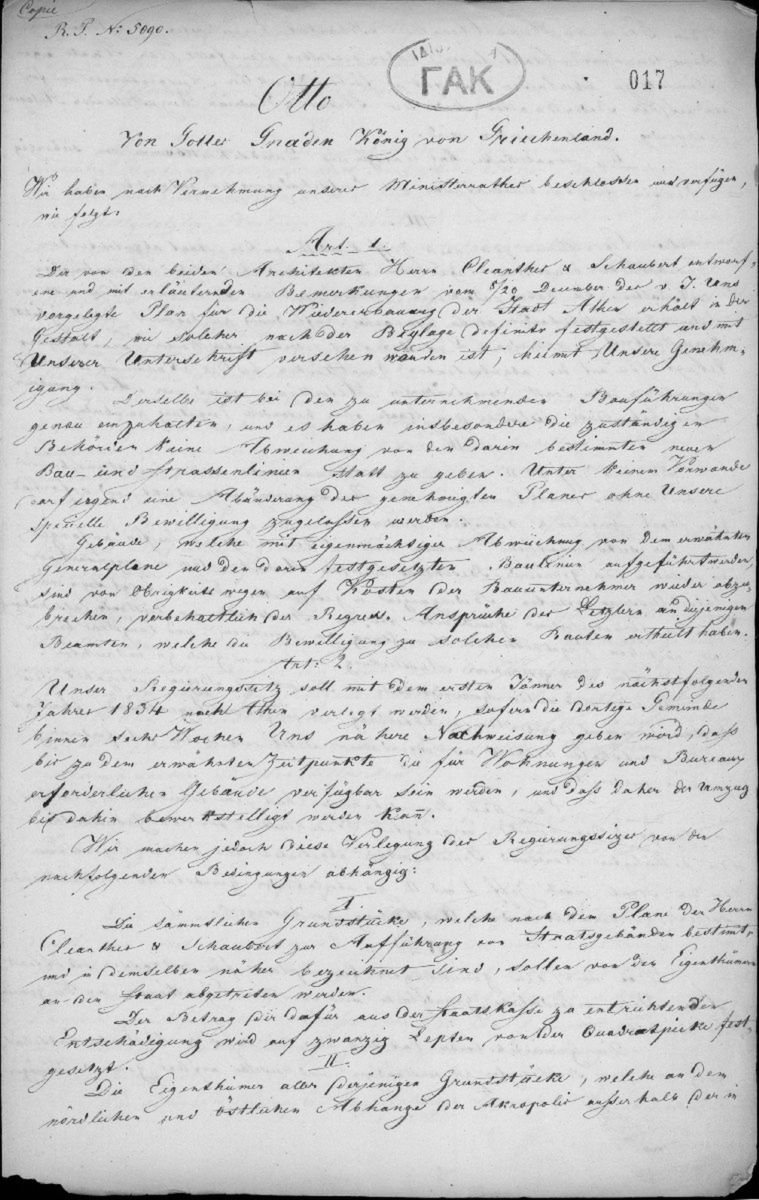 Copie
R. P. N: 5090.
ΓΑΚ
017
Otto
Von Gottes Gnaden König von Griechenland.
Wir haben nach Vernehmung unseres Ministerrathes beschlossen und verfügen,
wie folgt:
Art. 1.
Der von den beiden Architekten Herrn Cleanthes & Schaubert entworf-
ene und mit erläuternden Bemerkungen vom 8/20 December des v. J. Uns
vorgelegte Plan für die Wiedererbauung der Stadt Athen erhält in der
Gestalt, wie solcher nach der Beylage definitiv festgestellt und mit
Unserer Unterschrift versehen worden ist, hiemit Unsere Genehm-
igung.
Derselbe ist bei den zu unternehmenden Bauführungen
genau einzuhalten, und es haben insbesondere die zuständigen
Behörden keine Abweichung von den darin bestimmten neuen
Bau- und Strassenlinien statt zu geben. Unter keinem Vorwande
darf irgend eine Abänderung des genehmigten Planes ohne Unsere
specielle Bewilligung zugelassen werden.
Gebäude, welche mit eigenmächtiger Abweichung von dem erwähnten
Generalplane und den darin festgesetzten Baulinien aufgeführt werden,
sind von Obrigkeits wegen auf Kosten der Bauunternehmer wieder abzu-
brechen, vorbehaltlich der Regress-Ansprüche der Letztern an diejenigen
Beamten, welche die Bewilligung zu solchen Bauten ertheilt haben.
Art: 2.
Unser Regierungssitz soll mit dem ersten Jänner des nächstfolgenden
Jahres 1834 nach Athen verlegt werden, sofern die dortige Gemeinde
binnen sechs Wochen Uns nähere Nachweisung geben wird, daß
bis zu dem erwähnten Zeitpunkte die für Wohnungen und Bureaux
erforderlichen Gebäude verfügbar sein werden, und daß daher der Umzug
bis dahin bewerkstelligt werden kann.
Wir machen jedoch diese Verlegung des Regierungssizes von den
nachfolgenden Bedingungen abhängig:
I.
Die sämmtlichen Grundstücke, welche nach dem Plane der Herrn
Cleanthes & Schaubert zur Aufführung von Staatsgebäuden bestimt,
und in demselben näher bezeichnet sind, sollen von den Eigenthümern
an den Staat abgetreten werden.
Der Betrag der dafür aus der Staatskasse zu entrichtenden
Entschädigung wird auf zwanzig Lepten von der Quadratpieke fest-
gesetzt.
II.
Die Eigenthümer aller derjenigen Grundstücke, welche an dem
nördlichen und östlichen Abhange der Akropolis ausserhalb der in